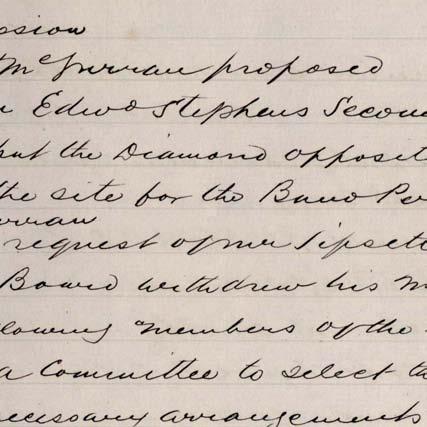 ssion
McGurran proposed
Edwd Stephens Secon
the Diamond opposit
the site for the Band
rran
request of Mr Tipsett
Board withdrew his M
lowing Members of the
a Committee to select th
ecessary arrangements